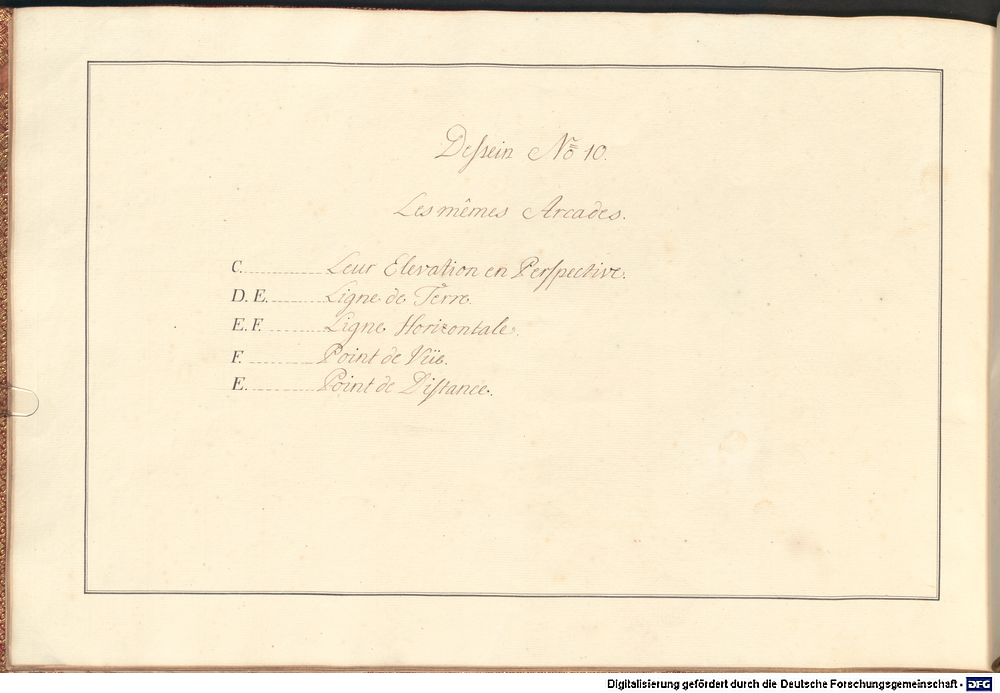 Deſsein No 10.
Les mêmes Arcades.
C. Leur Elevation en Perſpective.
D. E. Ligne de Terre.
E. F. Ligne Horizontale.
F. Point de Vüe.
E. Point de Diſtance.
Digitalisierung gefördert durch die Deutsche Forschungsgemeinschaft - DFG